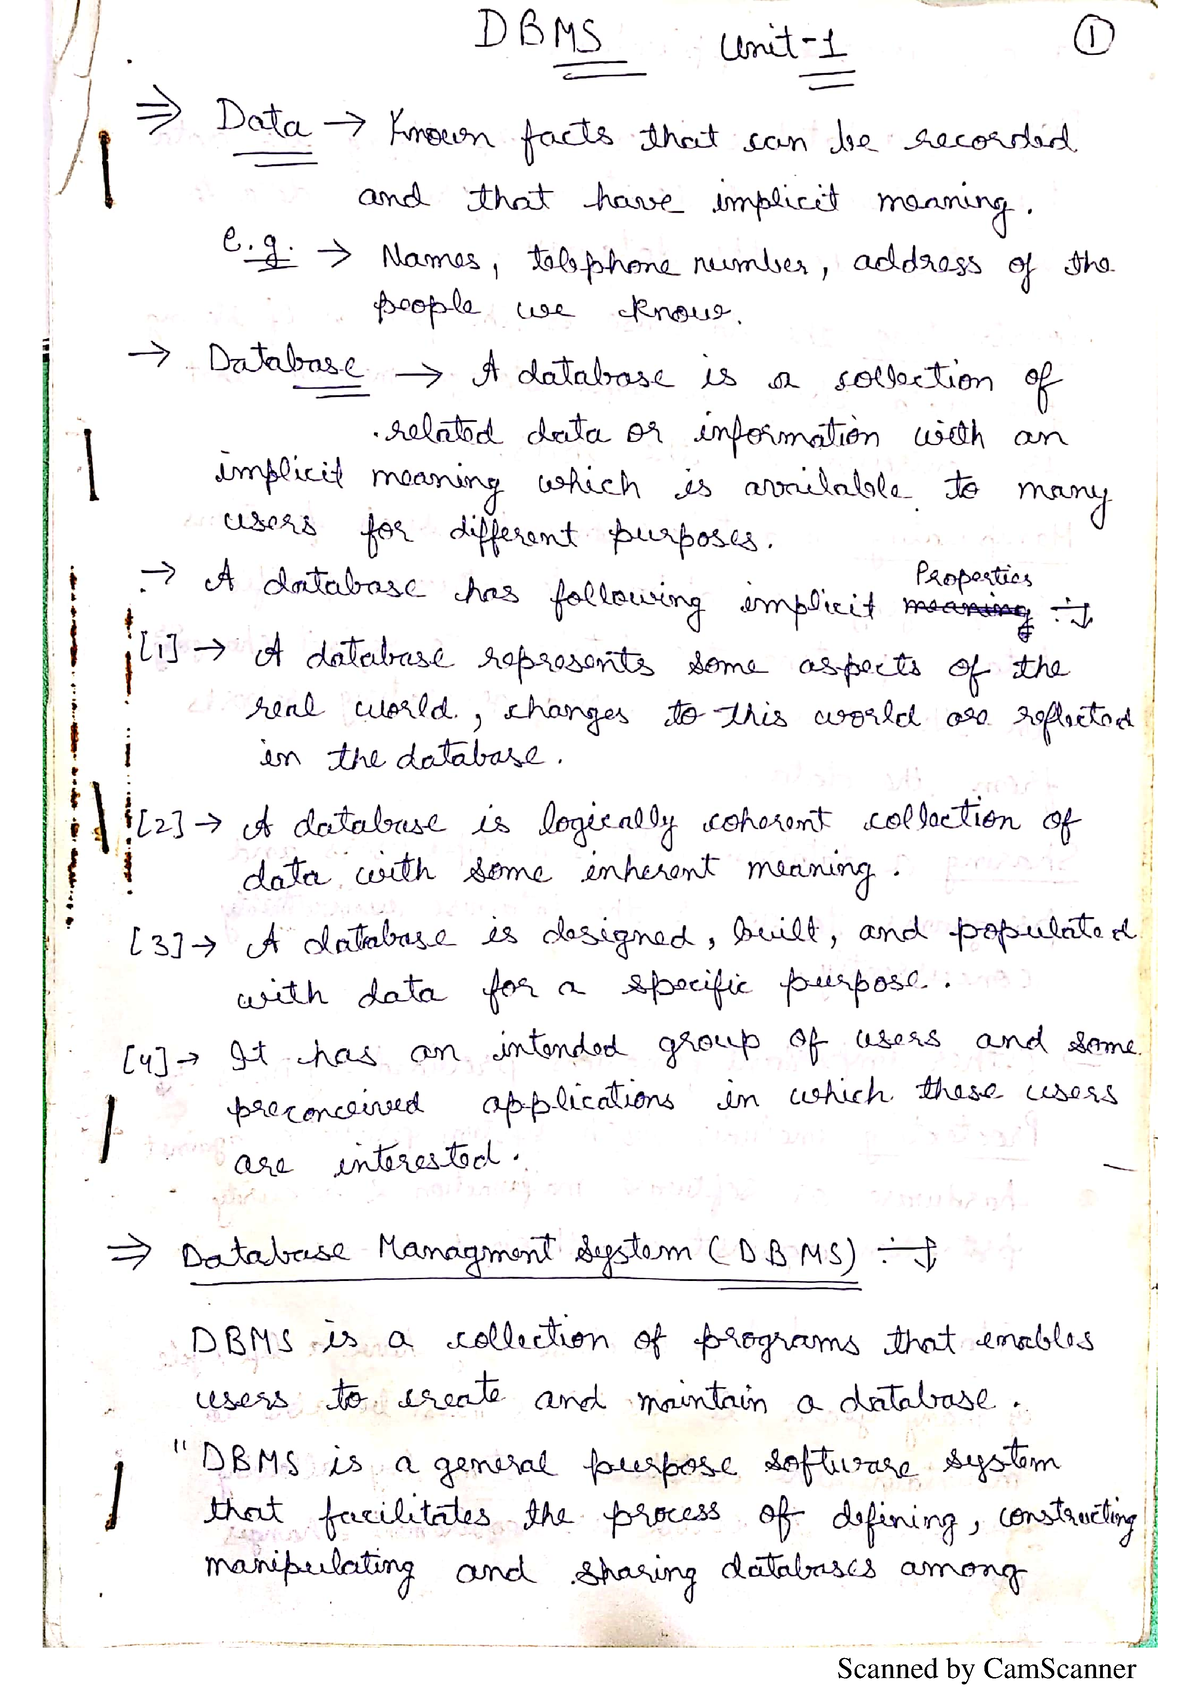 DBMS Unit-1 1
⇒ Data → Known facts that can be recorded
and that have implicit meaning.
e.g. → Names, telephone number, address of the
people we know.
→ Database → A database is a collection of
related data or information with an
implicit meaning which is available to many
users for different purposes.
→ A database has following implicit meaning Properties :-
[1] → A database represents some aspects of the
real world, changes to this world are reflected
in the database.
[2] → A database is logically coherent collection of
data with some inherent meaning.
[3] → A database is designed, built, and populated
with data for a specific purpose.
[4] → It has an intended group of users and some
preconceived applications in which these users
are interested.
⇒ Database Managment System (DBMS) :-
DBMS is a collection of programs that enables
users to create and maintain a database.
"DBMS is a general purpose software system
that facilitates the process of defining, constructing
manipulating and sharing databases among
Scanned by CamScanner